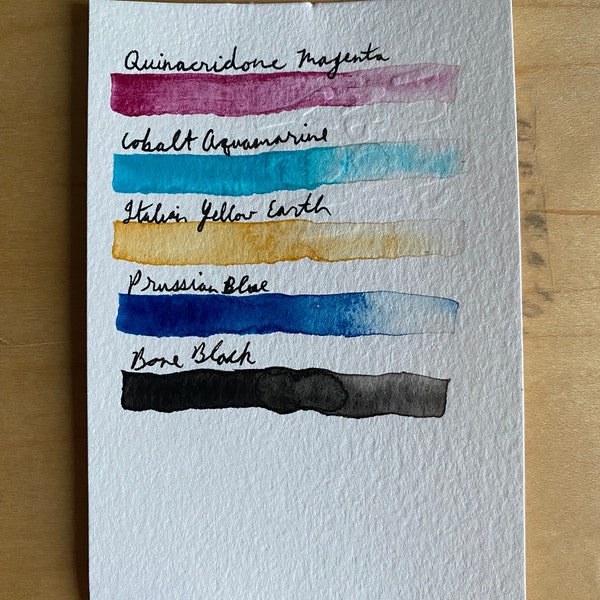 Quinacridone Magenta
Cobalt Aquamarine
Italian Yellow Earth
Prussian Blue
Bone Black